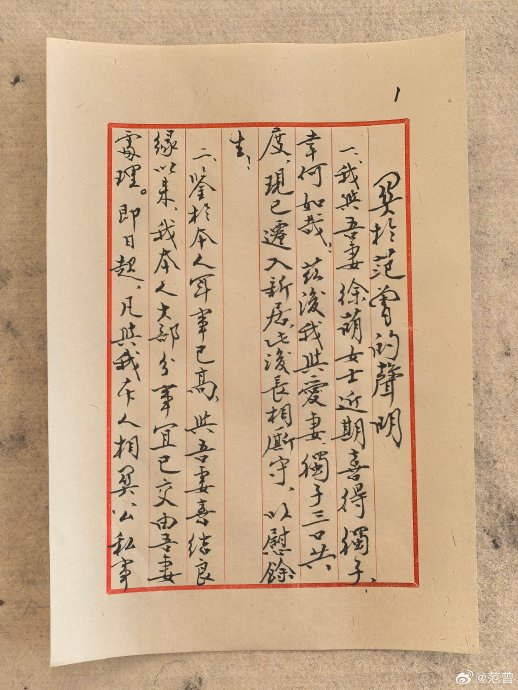 1
關於范曾的聲明
一、我與吾妻徐萌女士近期喜得獨子、
幸何如哉、茲後我與愛妻獨子三口共
度、現已遷入新居、此後長相廝守、以慰餘
生；
二、鑒於本人年事已高、與吾妻喜結良
緣以來、我本人大部分事宜已交由吾妻
處理。即日起、凡與我本人相關公私事
@范曾